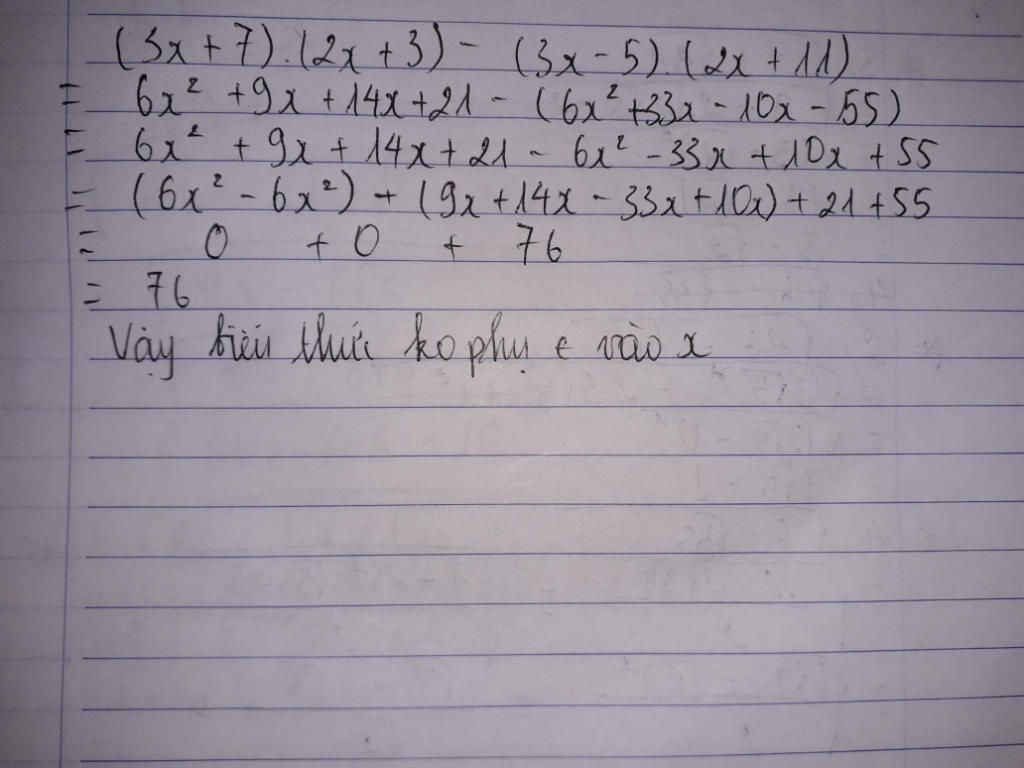 (3x + 7).(2x + 3) - (3x - 5).(2x + 11)
= 6x² + 9x + 14x + 21 - (6x² + 33x - 10x - 55)
= 6x² + 9x + 14x + 21 - 6x² - 33x + 10x + 55
= (6x² - 6x²) + (9x + 14x - 33x + 10x) + 21 + 55
= 0 + 0 + 76
= 76
Vậy biểu thức ko phụ t vào x